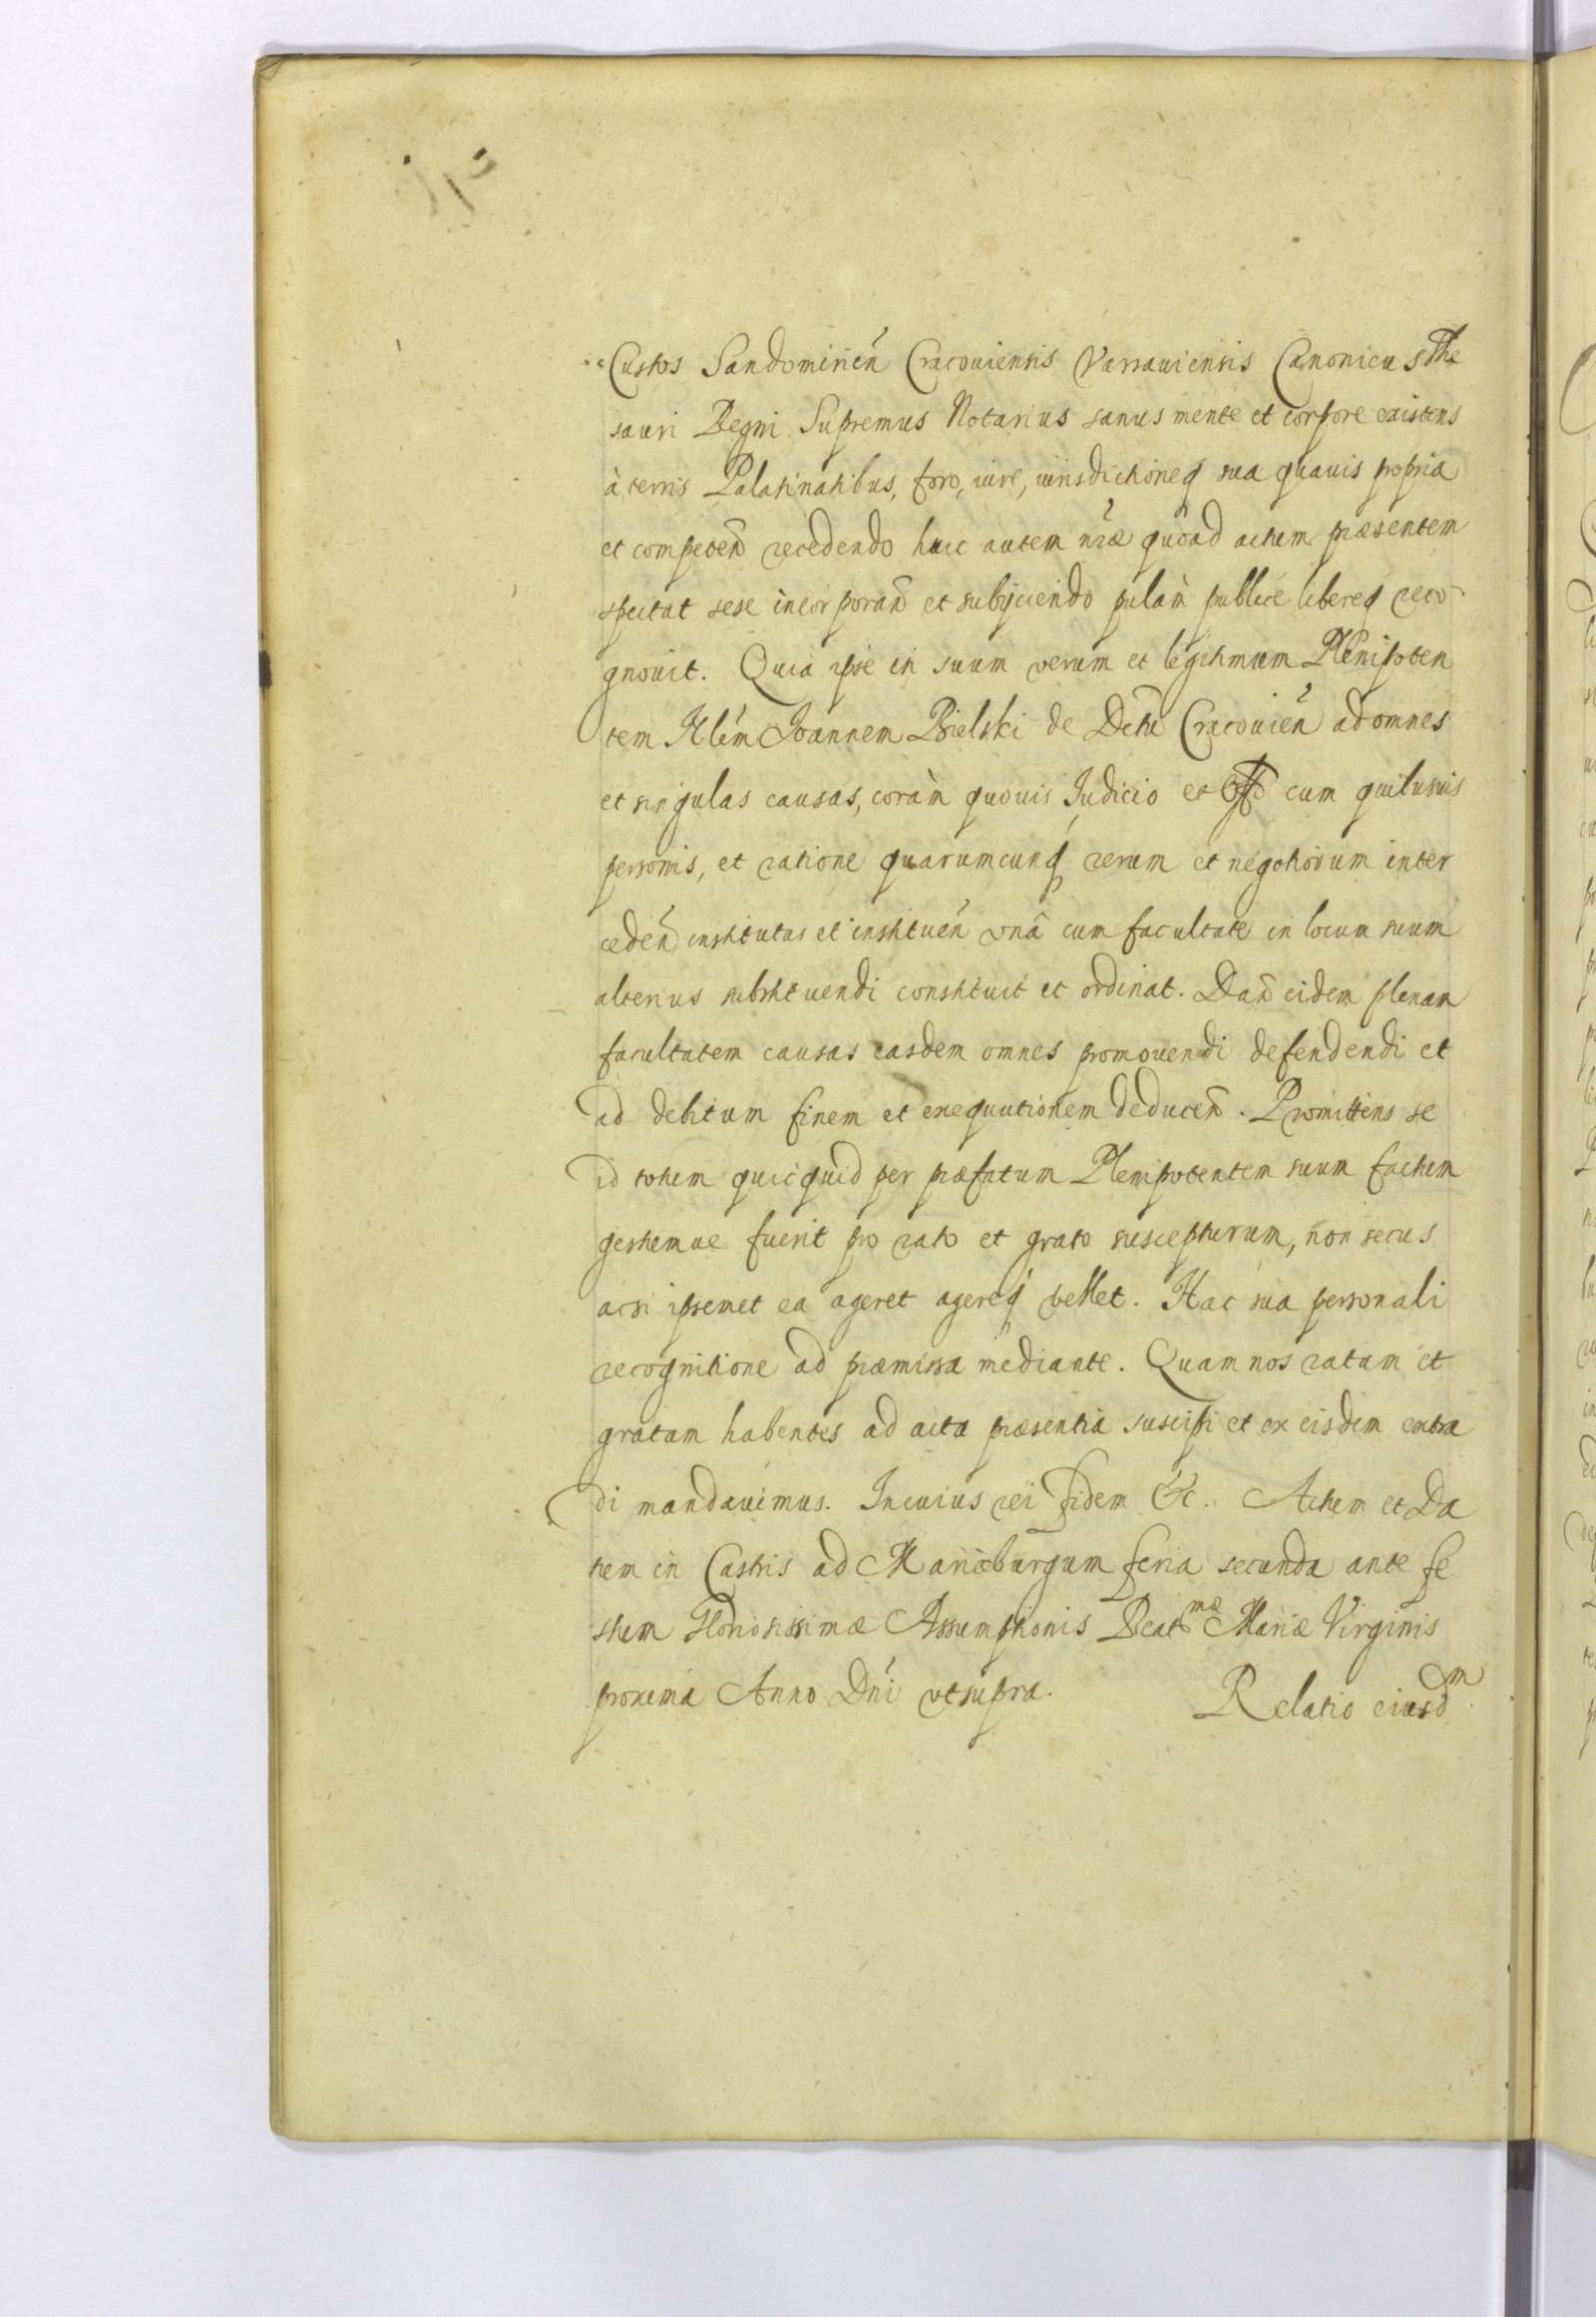 Custos Sandomirień Cracouiensis Varsauiensis Canonicus The
sauri Regni Supremus Notarius sanus mente et corpore existens
à terris Palatinatibus, foro, iure, iurisdictioneq̃ sua quauis propria
et competeñ recedendo huic autem nr̃æ quoad actum præsentem
spectat sese incorporañ et subijciendo palàm publicè libereq̃ reco
gnouit. Quia ipse in suum verum et legitimum Plenipoten
tem Joannem Bielski de Cracouień ad omnes
et singulas causas, coràm quouis Judicio et Offo cum quibusuis
personis, et ratione quarumcunq̃ rerum et negotiorum inter
cedeń institutas et instituén vnâ cum facultate in locum suum
alterius substituendi constituit et ordinat. Dañ eidem plenam
facultatem causas easdem omnes promouendi defendendi et
ad debitum finem et exequutionem deduceñ. Promittens se
id totum quicquid per præfatum Plenipotentem suum factum
gestumue fuerit pro rato et grato suscepturum, non secus
acsi ipsemet ea ageret agereq̃ vellet. Hac sua personali
recognitione ad præmissa mediante. Quam nos ratam et
gratam habentes ad acta præsentia suscipi et ex eisdem extra
di mandauimus. In cuius rei fidem &c. Actum et Da
tum in Castris ad Mariæburgum feria secunda ante fe
stum Gloriosissimæ Assumptionis Beatmæ Mariæ Virginis
proxima Anno Dńi vt supra.
Relatio eiusdm